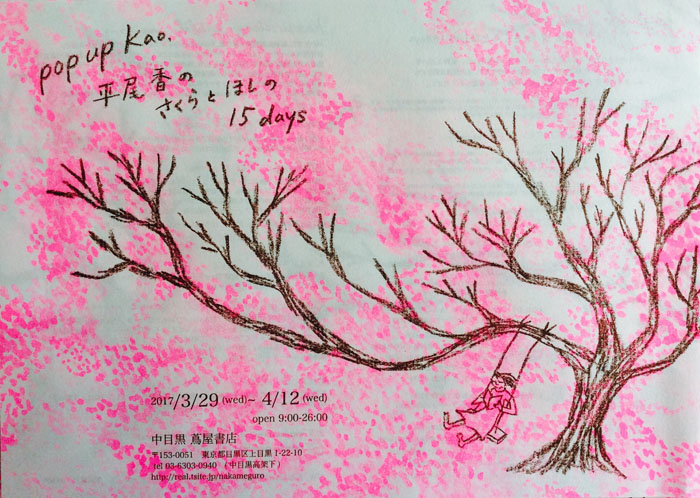 pop up Kao.
平尾香の
さくらとほしの
15 days
2017/3/29 (wed)~ 4/12 (wed)
open 9:00-26:00
中目黒 蔦屋書店
〒153-0051 東京都目黒区上目黒 1-22-10
tel 03-6303-0940 (中目黒高架下)
http://real.tsite.jp/nakameguro